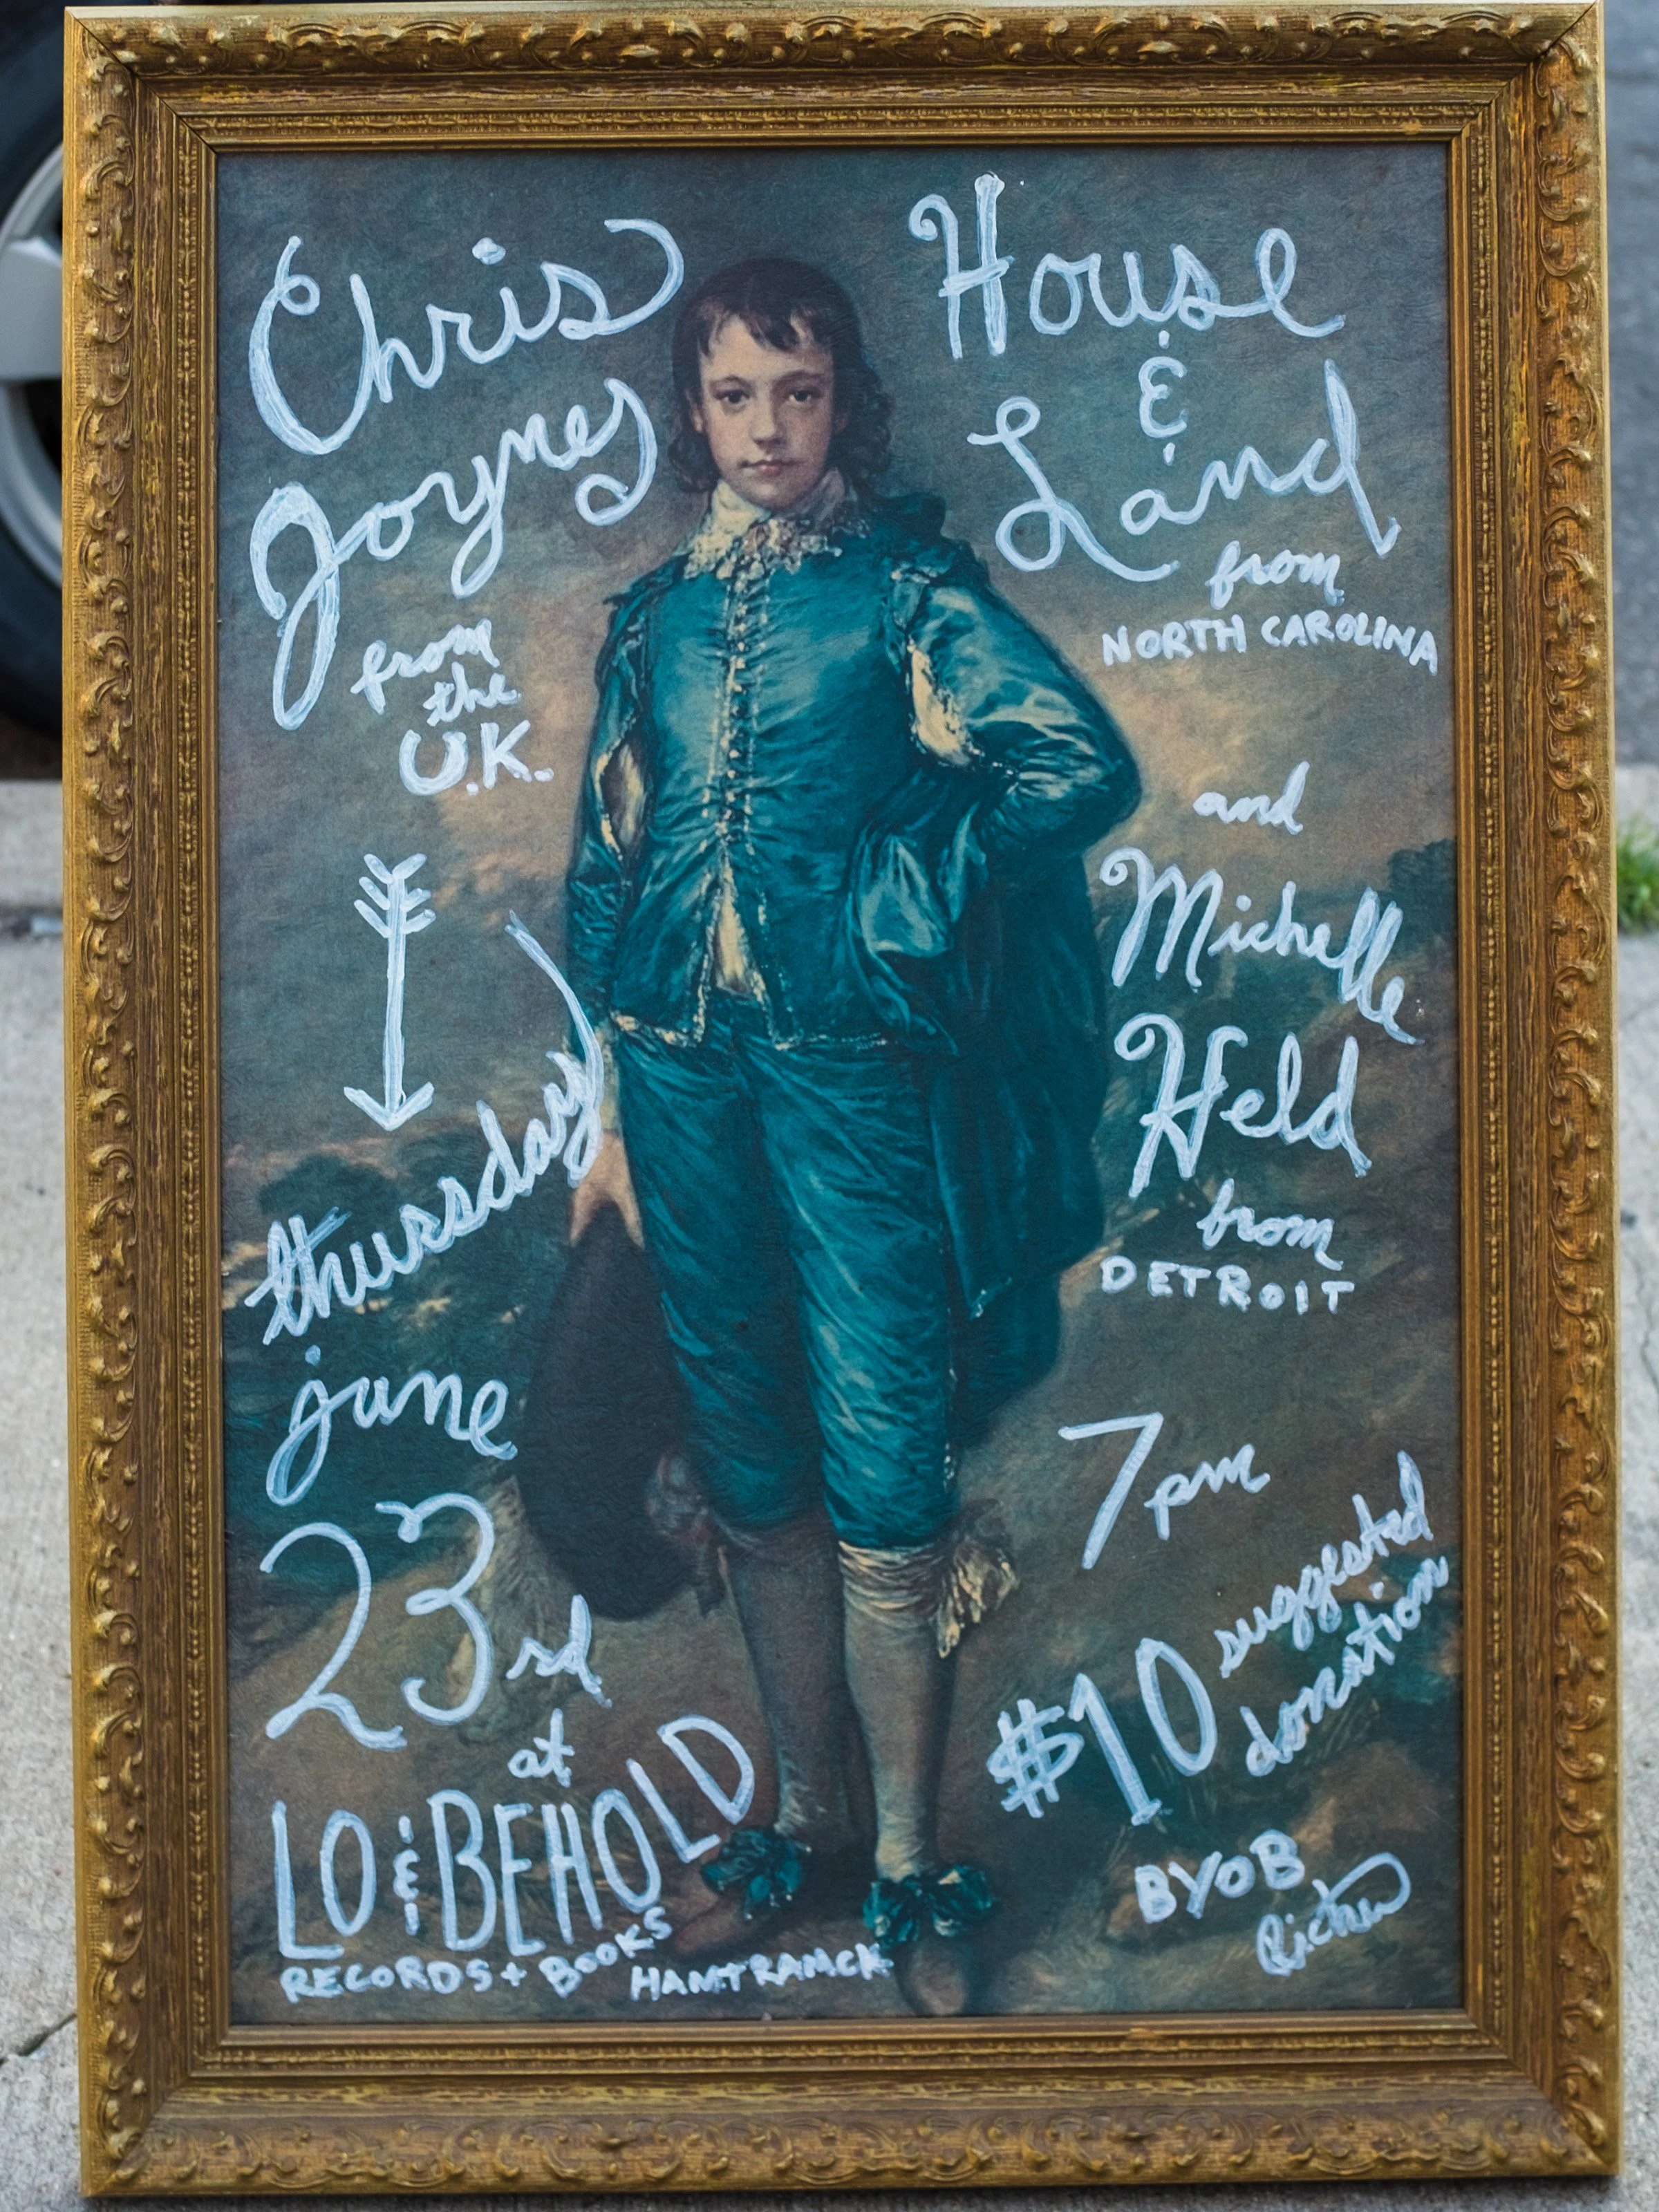 Chris
Joynes
from
the
U.K.
thursday
june
23rd
at
LO & BEHOLD
RECORDS + BOOKS
HAMTRAMCK
House
&
Land
from
NORTH CAROLINA
and
Michelle
Held
from
DETROIT
7pm
$10 suggested
donation
BYOB